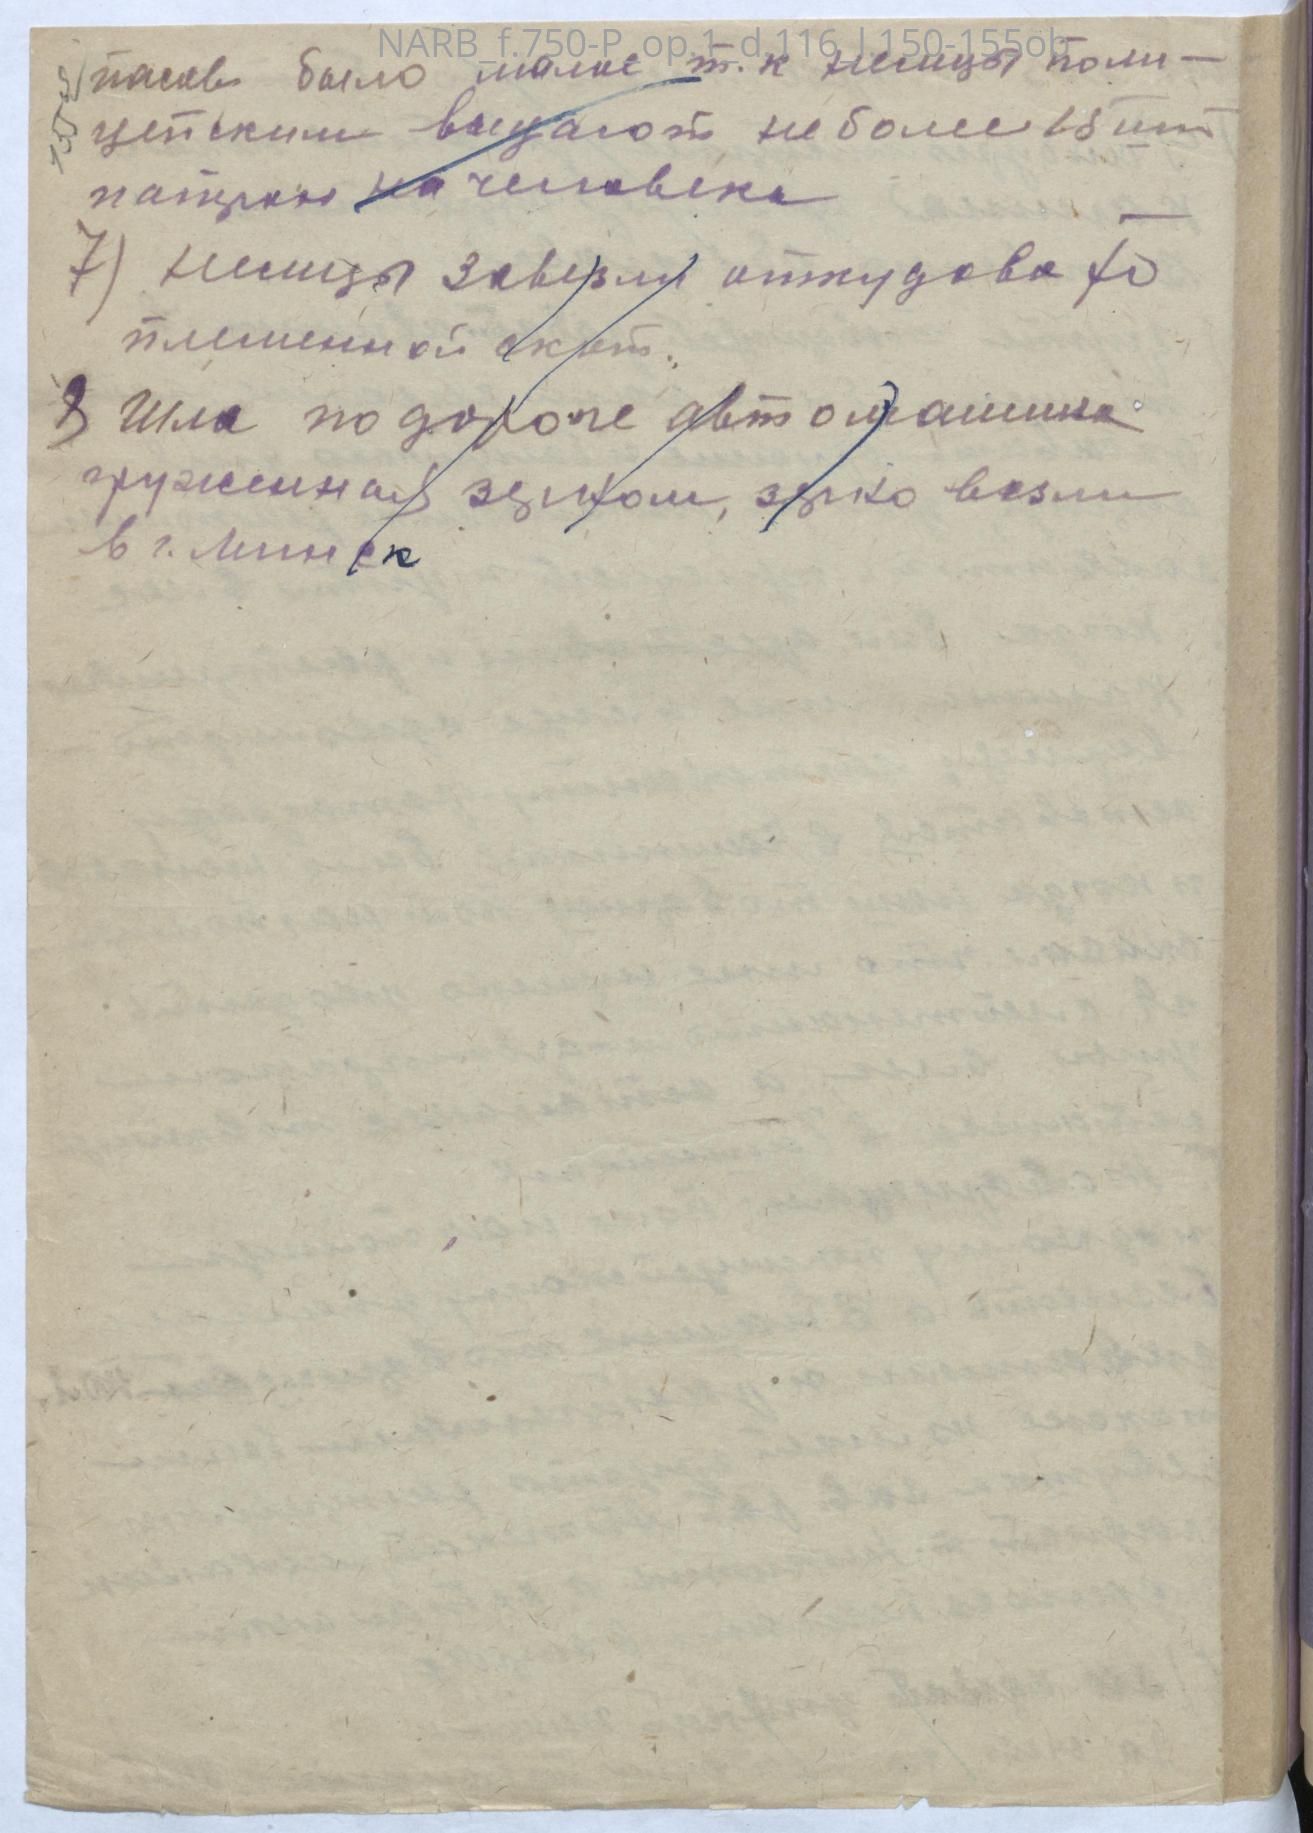 NARB_f.750-P_op.1_d.116_l.150-155ob
пасов было мало т.к немцы поли-
цейским выдают не более 15 шт
патрон на человека
7) немцы завезли откудова то
племенной скот.
8) Шла по дороге автомашина
груженная зерном, зерно везли
в г. Минск